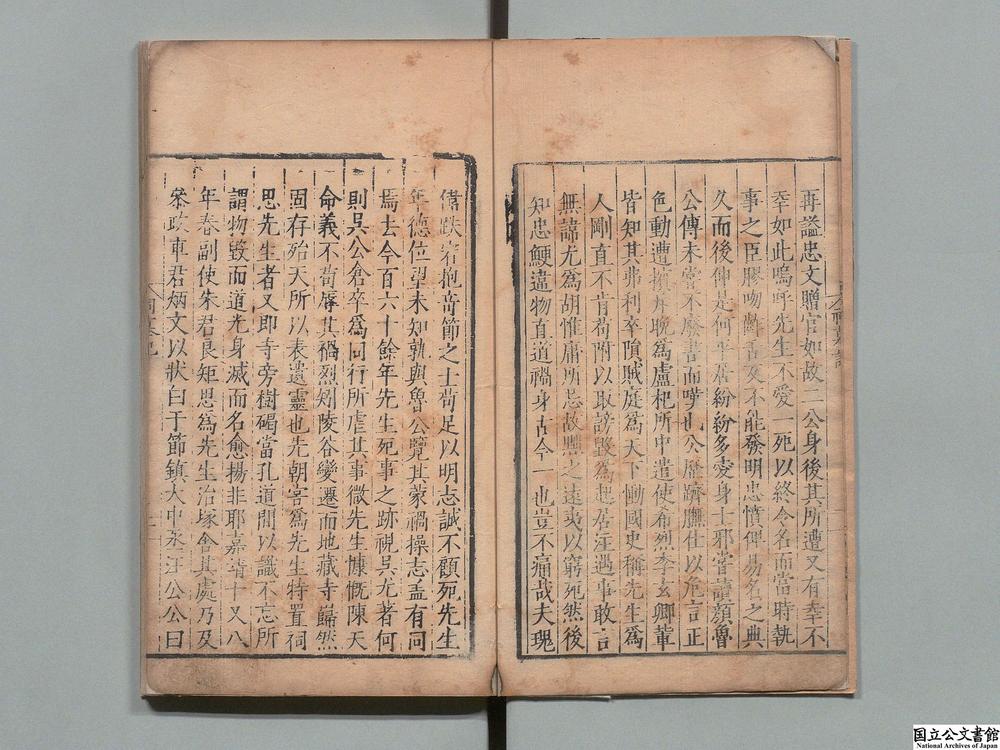 再謚忠文贈官如故二公身後其所遭又有幸不
幸如此嗚呼先生不愛一死以終令名而當時執
事之臣膠吻齰舌又不能發明忠憤俾易名之典
久而後伸是何平居紛紛多变身士邪嘗讀顏魯
公傳未嘗不廢書而嘆也公歷躋膴仕以危言正
色動遭擯斥晚爲盧杞所中遣使希烈李玄卿輩
皆知其弗利卒隕賊庭爲天下慟國史稱先生爲
人剛直不肯苟附以取謗毀爲起居注遇事敢言
無諱尤爲胡惟庸所忌故擠之遠夷以窮死然後
知忠鯁違物直道禍身古今一也豈不痛哉夫瑰
偉跌宕抱奇節之士苟足以明志誠不顧死先生
年德位望未知孰與魯公覽其蒙禍操志盖有同
焉去今百六十餘年先生死事之跡視吳尤著何
則吳公倉卒爲同行所虐其事微先生慷慨陳天
命義不苟辱其禍烈矧陵谷變遷而地藏寺巋然
固存殆天所以表遺靈也先朝害爲先生特置祠
思先生者又即寺旁樹碣當孔道間以識不忘所
謂物毀而道光身滅而名愈揚非耶嘉靖十又八
年春副使朱君良矩思爲先生治塚舍其處乃及
叅政車君炳文以狀白于節鎮大中丞汪公公曰
国立公文書館
National Archives of Japan